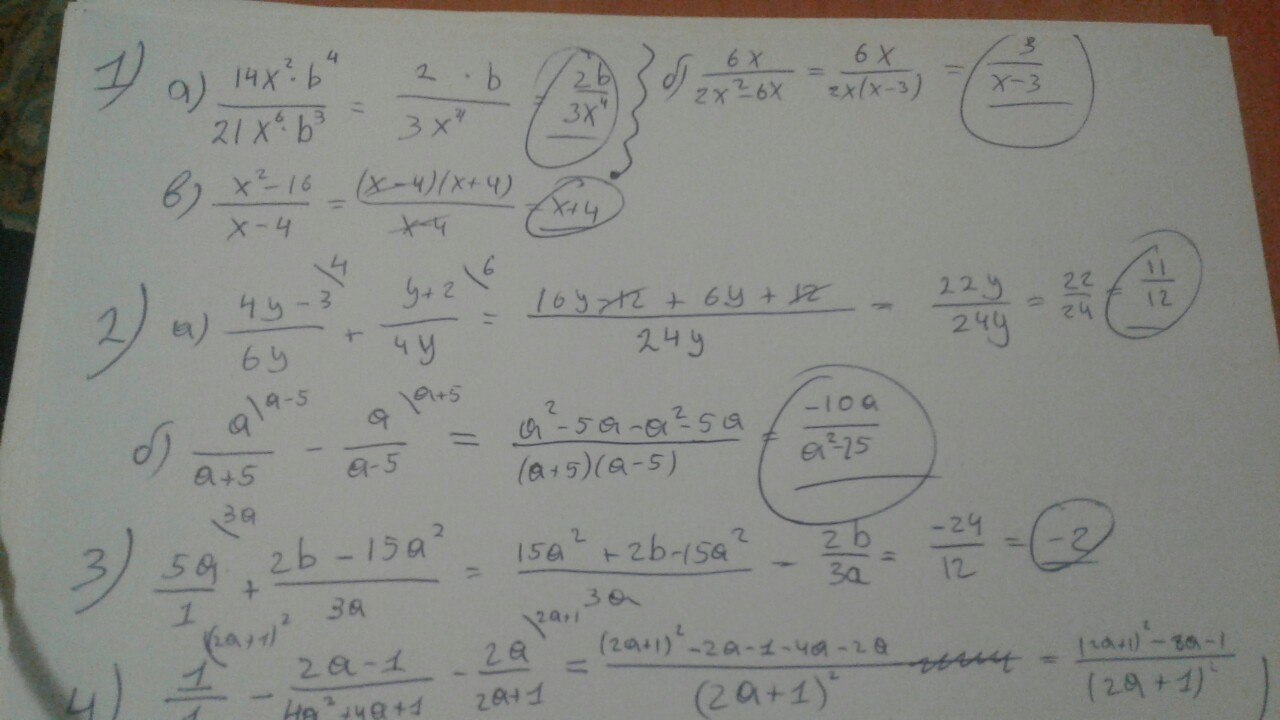 1) а) 14x²·b⁴/21x⁶·b³ = 2·b/3x⁴ = 2b/3x⁴ б) 6x/2x²-6x = 6x/2x(x-3) = 3/x-3
в) x²-16/x-4 = (x-4)(x+4)/x-4 = x+4
2) а) 4y-3\4/6y + y+2\6/4y = 16y-12+6y+12/24y = 22y/24y = 22/24 = 11/12
б) a\a-5/a+5 - a\a+5/a-5 = a²-5a-a²-5a/(a+5)(a-5) = -10a/a²-25
3) 5a\3a/1 + 2b-15a²/3a = 15a²+2b-15a²/3a - 2b/3a = -24/12 = -2
4) 1\(2a+1)²/1 - 2a-1/4a²+4a+1 - 2a\2a+1/2a+1 = (2a+1)²-2a-1-4a-2a/(2a+1)² = (2a+1)²-8a-1/(2a+1)²